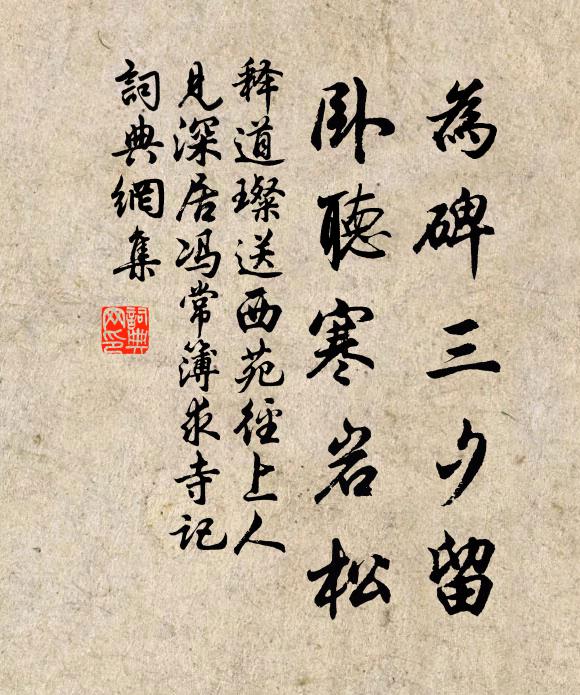 為碑三夕留
卧聽寒岩松
释道璨送西苑徑上人
見深居冯常簿求寺记
詞典網集
詞典網印